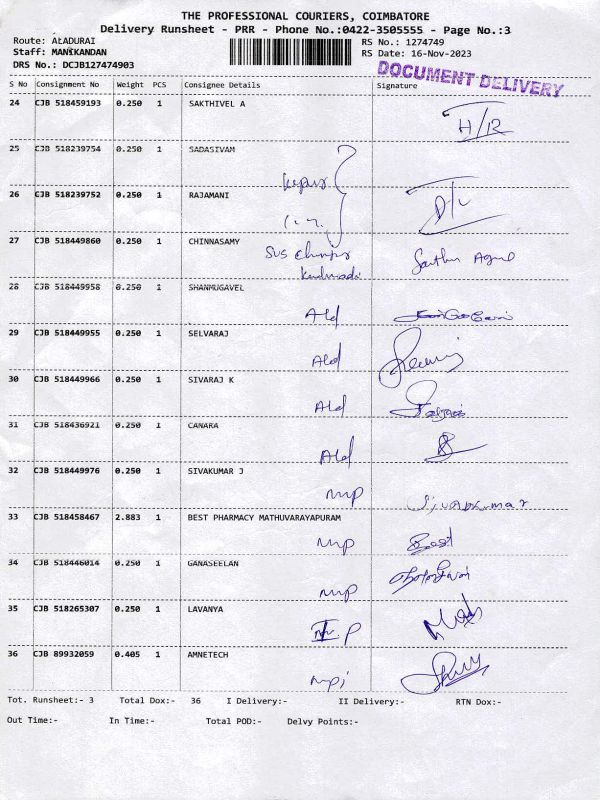 THE PROFESSIONAL COURIERS, COIMBATORE
Delivery Runsheet - PRR - Phone No.:0422-3505555 - Page No.:3
Route: ALADURAI
RS No.: 1274749
Staff: MANIKANDAN
RS Date: 16-Nov-2023
DRS No.: DCJB127474903
DOCUMENT DELIVERY
S No Consignment No Weight PCS Consignee Details Signature
24 CJB 518459193 0.250 1 SAKTHIVEL A
H/R
25 CJB 518239754 0.250 1 SADASIVAM
26 CJB 518239752 0.250 1 RAJAMANI
27 CJB 518449860 0.250 1 CHINNASAMY
SVS
28 CJB 518449958 0.250 1 SHANMUGAVEL
Ald
29 CJB 518449955 0.250 1 SELVARAJ
Ald
30 CJB 518449966 0.250 1 SIVARAJ K
Ald
31 CJB 518436921 0.250 1 CANARA
Ald
32 CJB 518449976 0.250 1 SIVAKUMAR J
mp Sivapkumar
33 CJB 518458467 2.883 1 BEST PHARMACY MATHUVARAYAPURAM
mp Best
34 CJB 518446014 0.250 1 GANASEELAN
mp
35 CJB 518265307 0.250 1 LAVANYA
P
36 CJB 89932059 0.405 1 AMNETECH
Tot. Runsheet:- 3 Total Dox:- 36 I Delivery:- II Delivery:- RTN Dox:-
Out Time:- In Time:- Total POD:- Delvy Points:-